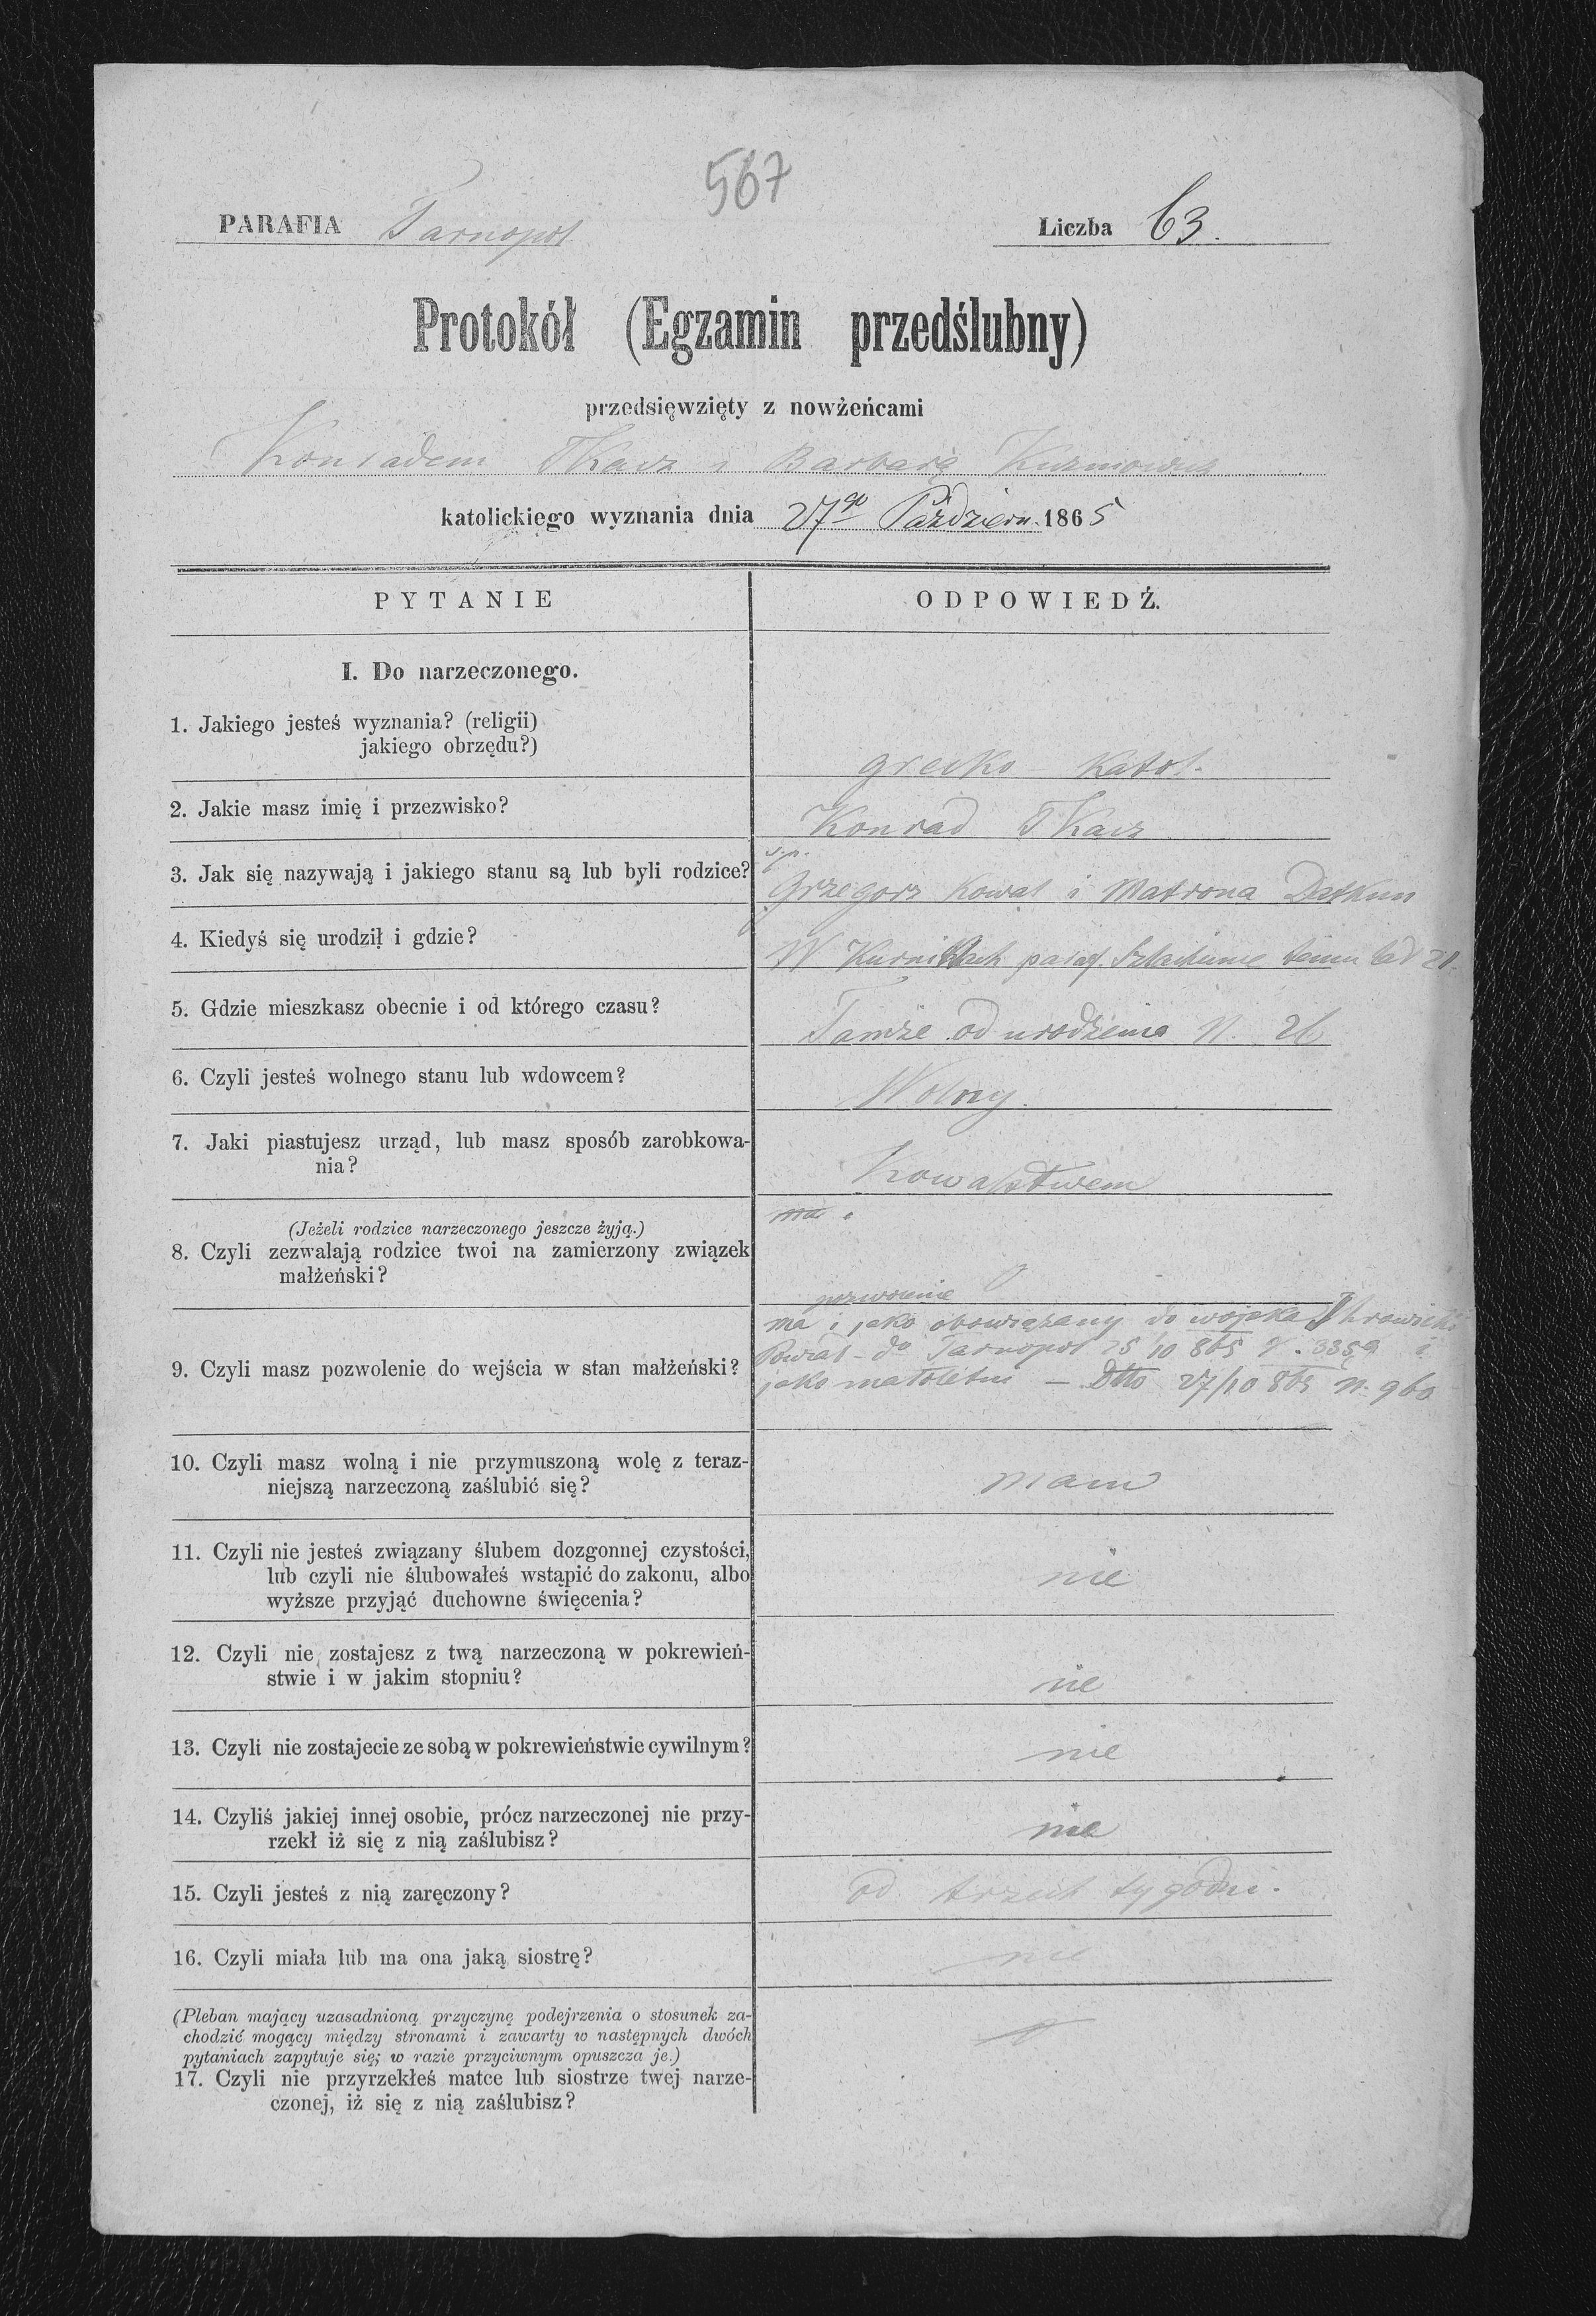 567
PARAFIA Tarnopol
Liczba 63.
Protokół (Egzamin przedślubny)
przedsięwzięty z nowżeńcami
Konradem Tkacz i Barbarą
katolickiego wyznania dnia 27go Październ. 1865
PYTANIE
ODPOWIEDŹ.
I. Do narzeczonego.
1. Jakiego jesteś wyznania? (religii)
jakiego obrzędu?)
grecko - katol.
2. Jakie masz imię i przezwisko?
Konrad Tkacz
3. Jak się nazywają i jakiego stanu są lub byli rodzice?
Grzegorz Kowal i Matrona
4. Kiedyś się urodził i gdzie?
W paraf. temu lat 21.
5. Gdzie mieszkasz obecnie i od którego czasu?
Tamże od urodzenia N. 26
6. Czyli jesteś wolnego stanu lub wdowcem?
Wolny.
7. Jaki piastujesz urząd, lub masz sposób zarobkowa-
nia?
Kowalstwem
(Jeżeli rodzice narzeczonego jeszcze żyją.)
8. Czyli zezwalają rodzice twoi na zamierzony związek
małżeński?
ma
9. Czyli masz pozwolenie do wejścia w stan małżeński?
pozwolenie
ma i jako obowiązany do wojska
Powiat - do Tarnopol 25/10 865 i
jako małoletni - Dtto 27/10 865 N. 960
10. Czyli masz wolną i nie przymuszoną wolę z teraz-
niejszą narzeczoną zaślubić się?
mam
11. Czyli nie jesteś związany ślubem dozgonnej czystości,
lub czyli nie ślubowałeś wstąpić do zakonu, albo
wyższe przyjąć duchowne święcenia?
nie
12. Czyli nie zostajesz z twą narzeczoną w pokrewień-
stwie i w jakim stopniu?
nie
13. Czyli nie zostajecie ze sobą w pokrewieństwie cywilnym?
nie
14. Czyliś jakiej innej osobie, prócz narzeczonej nie przy-
rzekł iż się z nią zaślubisz?
nie
15. Czyli jesteś z nią zaręczony?
od trzech tygodni.
16. Czyli miała lub ma ona jaką siostrę?
nie
(Pleban mający uzasadnioną przyczynę podejrzenia o stosunek za-
chodzić mogący między stronami i zawarty w następnych dwóch
pytaniach zapytuje się; w razie przyciwnym opuszcza je.)
17. Czyli nie przyrzekłeś matce lub siostrze twej narze-
czonej, iż się z nią zaślubisz?